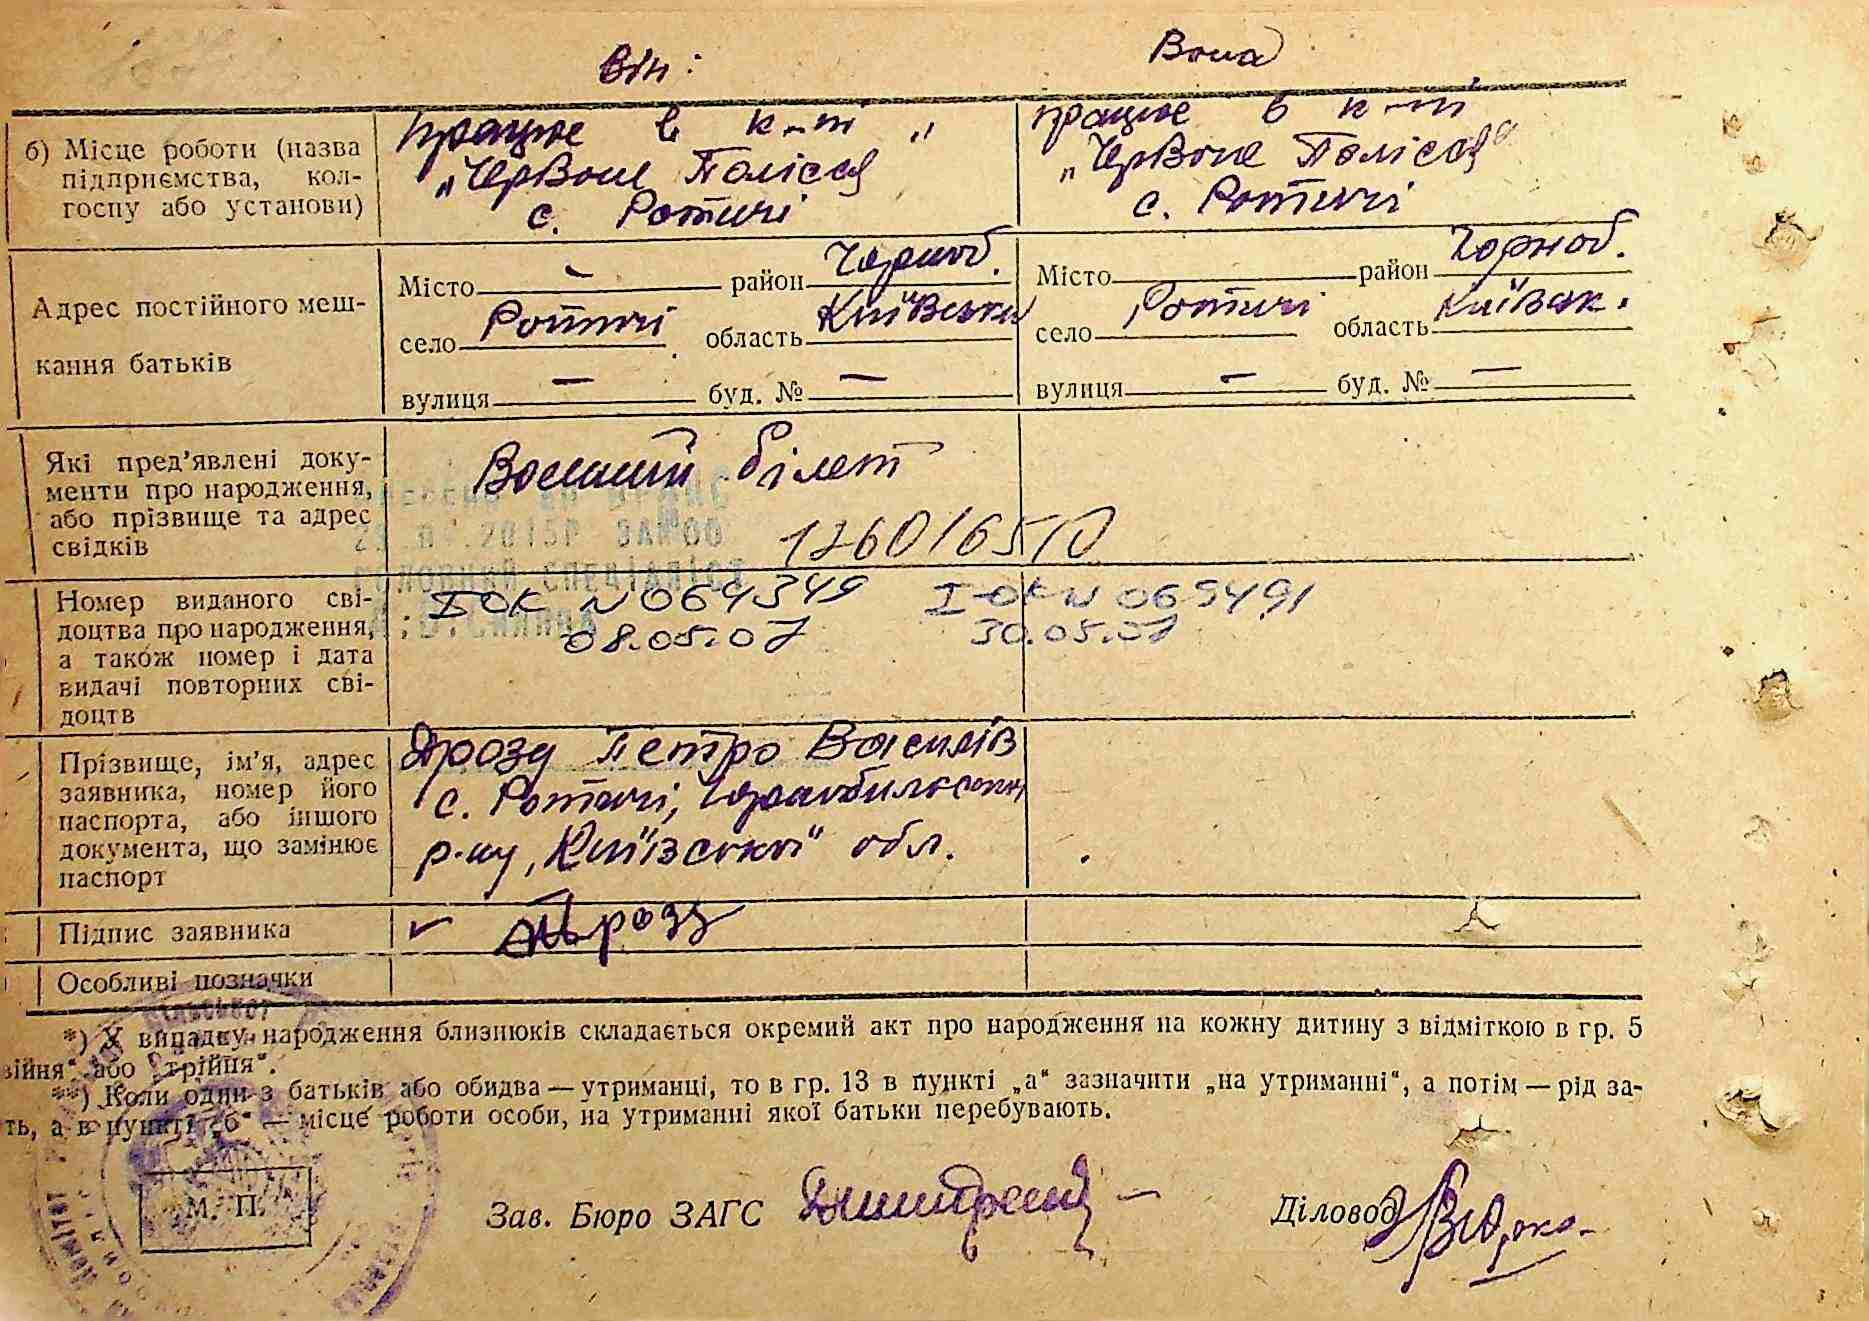 Він: Вона
б) Місце роботи (назва підприємства, колгоспу або установи)
працює в к-ті „
„Червоне Полісся
с. Ротичі
працює в к-ті
„Червоне Полісся“
с. Ротичі
Адрес постійного меш-
кання батьків
Місто - район Чорноб.
село Ротичі область Київська
вулиця — буд. № —
Місто район Чорноб.
село Ротичі область Київськ.
вулиця — буд. № —
Які пред’явлені доку-
менти про народження,
або прізвище та адрес
свідків
Воєнний білет
ГОЛОВНИЙ СПЕЦІАЛІСТ
Номер виданого сві-
доцтва про народження,
а також номер і дата
видачі повторних сві-
доцтв
І-ОК N 064349
08.05.07
І-ОК N 065491
30.05.07
Прізвище, ім’я, адрес
заявника, номер його
паспорта, або іншого
документа, що замінює
паспорт
Дрозд Петро Василів
с. Ротичі, Чорнобильськ
р-ну, Київської обл.
Підпис заявника
Дрозд
Особливі позначки
*) У випадку народження близнюків складається окремий акт про народження на кожну дитину з відміткою в гр. 5
війня“ або „трійня“.
**) Коли один з батьків або обидва — утриманці, то в гр. 13 в пункті „а“ зазначити „на утриманні“, а потім — рід за-
ть, а в пункті „б“ — місце роботи особи, на утриманні якої батьки перебувають.
М. П.
Зав. Бюро ЗАГС
Діловод